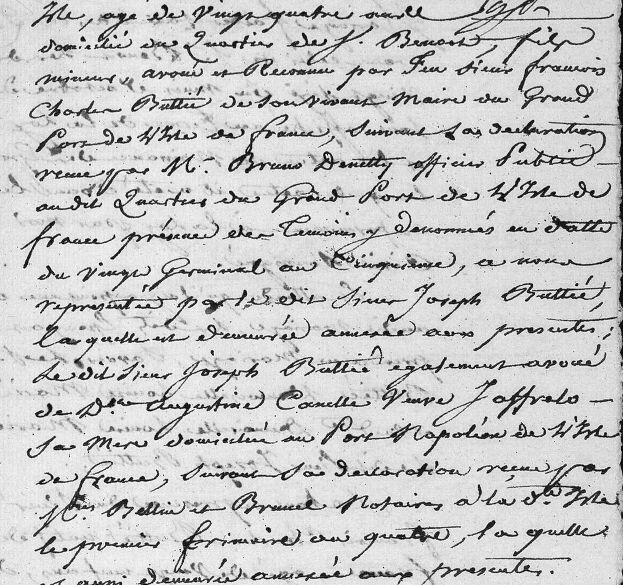 Isle, agé de vingt quatre ans
domicilié au Quartier de St. Benoist, fils
mineur, avoué et Reconnu par feu Sieur françois
Charles Buttié de Son vivant Maire du Grand
Port de L'Isle de france, Suivant Sa declaration
recue par Mr. Bruno officier Public
audit Quartier du Grand Port de L'Isle de
france présence des Temoins y denommés en datte
du vingt Germinal an Cinquieme, a nous
representée par le dit Sieur Joseph Buttié,
laquelle est demeurée annexée aux presentes;
Le dit Sieur Joseph Buttié également avoué
de De. Augustine Camille Veuve Jaffrelo
Sa Mere domiciliée au Port Napoléon de L'Isle
de france, Suivant Sa declaration reçue par
Bellin et Brunel Notaires a la de. Isle
le premier frimaire an quatre, laquelle
est aussi demeurée annexée aux presentes.